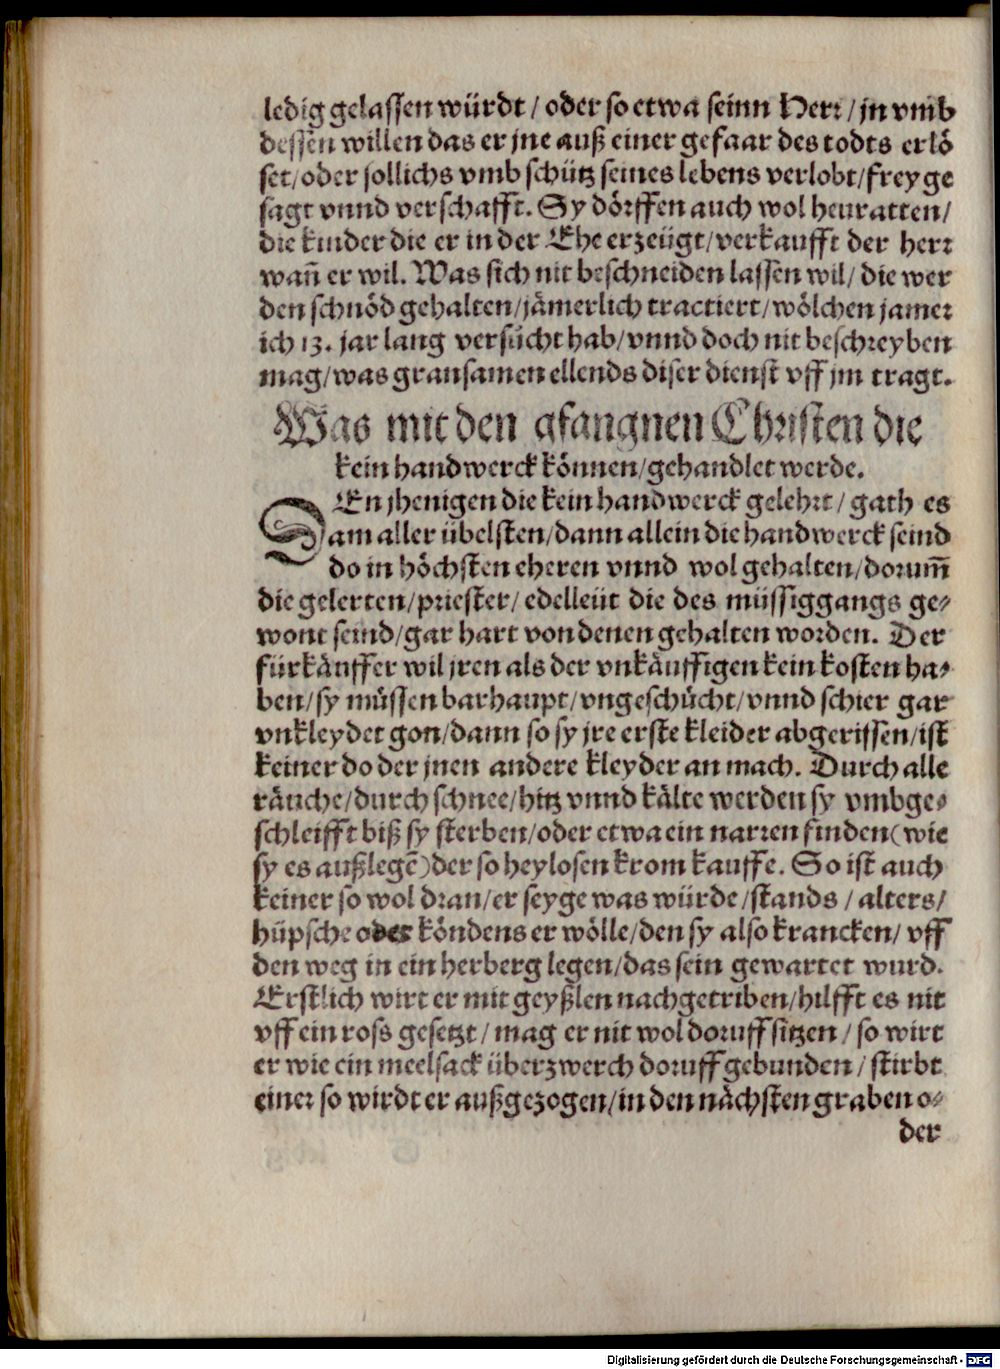 ledig gelassen würdt / oder so etwa seinn Herr / jn vmb
dessen willen das er jne auß einer gefaar des todts erlö
set/oder sollichs vmb schütz seines lebens verlobt/frey ge
sagt vnnd verschafft. Sy dörffen auch wol heuratten/
die kinder die er in der Ehe erzeügt/verkaufft der herr
wañ er wil. Was sich nit beschneiden lassen wil/ die wer
den schnöd gehalten/jämerlich tractiert/wölchen jamer
ich 13. jar lang versücht hab/vnnd doch nit beschreyben
mag/was grausamen ellends diser dienst vff jm tragt.
Was mit den gfangnen Christen die
kein handwerck können/gehandlet werde.
DEn jhenigen die kein handwerck gelehrt / gath es
am aller übelsten/dann allein die handwerck seind
do in höchsten eheren vnnd wol gehalten/dorum̄
die gelerten/priester/ edelleüt die des müssiggangs ge-
wont seind/gar hart von denen gehalten worden. Der
fürkäuffer wil jren als der vnkäuffigen kein kosten ha-
ben/sy müssen barhaupt/vngeschücht/vnnd schier gar
vnkleydet gon/dann so sy jre erste kleider abgerissen/ist
keiner do der jnen andere kleyder an mach. Durch alle
räuche/durch schnee/hitz vnnd kälte werden sy vmbge-
schleifft biß sy sterben/oder etwa ein narren finden(wie
sy es außlegē)der so heylosen krom kauffe. So ist auch
keiner so wol dran/er seyge was würde/stands / alters/
hüpsche oder köndens er wölle/den sy also krancken/ vff
den weg in ein herberg legen/das sein gewartet wurd.
Erstlich wirt er mit geyßlen nachgetriben/hilfft es nit
vff ein ross gesetzt / mag er nit wol doruff sitzen / so wirt
er wie ein meelsack überzwerch doruff gebunden / stirbt
einer so wirdt er außgezogen/in den nächsten graben o-
der
Digitalisierung gefördert durch die Deutsche Forschungsgemeinschaft - DFG